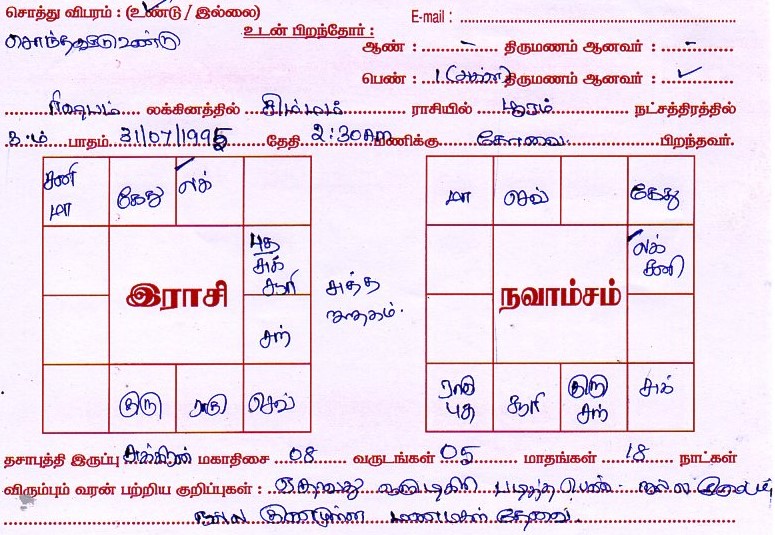 சொத்து விபரம் : (உண்டு / இல்லை)
E-mail :
சொந்தவீடு உண்டு
உடன் பிறந்தோர் :
ஆண் : - திருமணம் ஆனவர் : -
பெண் : 1 திருமணம் ஆனவர் : ✓
ரிஷபம் லக்கினத்தில் சிம்மம் ராசியில் பூரம் நட்சத்திரத்தில்
2.ம் பாதம் 31/07/1995 தேதி 2:30AM மணிக்கு கோவை பிறந்தவர்.
சனி மா
கேது
லக்
புத சுக் சூரி
இராசி
சந்
குரு
ராகு
செவ்
சுத்த ஜாதகம்.
மா
செவ்
கேது
லக் சனி
நவாம்சம்
ராகு புத
சூரி
குரு சந்
சுக்
தசாபுத்தி இருப்பு சுக்கிரன் மகாதிசை 08 வருடங்கள் 05 மாதங்கள் 18 நாட்கள்
விரும்பும் வரன் பற்றிய குறிப்புகள் : ஏதாவது டிகிரி படித்த பெண். நல்ல
நல்ல குணமுள்ள மணமகள் தேவை.